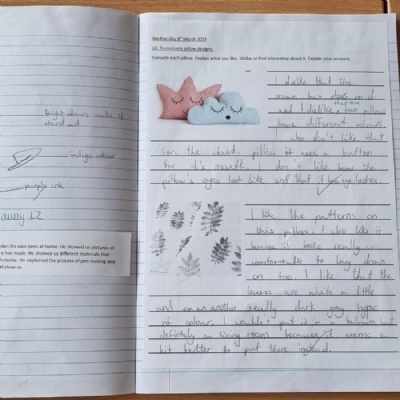 Bright colours make it
stand out
indigo colour
purple ink
away L2
his own pens at home. He showed us pictures of
has made. He showed us different materials that
home. He explained the process of pen making and
show us
Wednesday 8th March 2023
LO: To evaluate pillow designs.
Evaluate each pillow. Explain what you like, dislike or find interesting about it. Explain your answers.
I dislike that the
crown has does on it
and I dislike pillows
have different colours.
I also don't like that
for the cloudy pillow it uses a button
for it's mouth. I don't like how the
pillow's eyes look like and that it has eyelashes.
I like the patterns on
this pillow. I also like it
because it looks really
comfortable to lay down
on too. I like that the
leaves are white a little
and on another really dark grey type
of colour. I wouldn't put it in a bedroom but
definitely a living room because it seems a
bit better to put there instead.